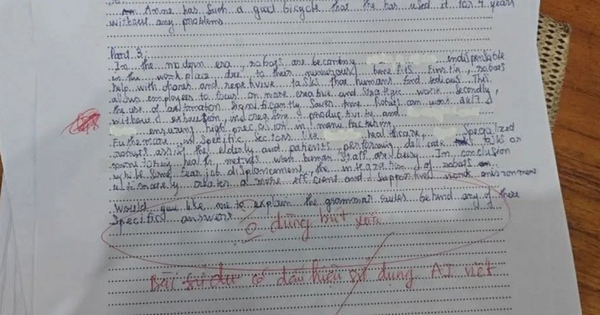 Anne has such a good bicycle that she has used it for 4 years
without any problems
Part 3:
In the modern era, robots are becoming indispensible
in the work place due to their numerous benefits. Firstly, robots
help with and repetitive tasks that humans find tedious. This
allows employees to focus on more creative and strategic work. Secondly,
the use of automation significantly saves time. Robots can work 24/7
without exhaustion, increasing productivity and
ensuring high precision in manufacturing
Furthermore, in specific sectors like healthcare, specialized
robots assist the elderly and patients, performing delicate tasks or
monitoring health metrics when human staff are busy. In conclusion
while some fear job displacement, the integration of robots
ultimately creates a more efficient and supportive work environment
Would you like me to explain the grammar rules behind any of these
specific answers?
dùng bút xoá
Bài có dấu hiệu sử dụng AI viết